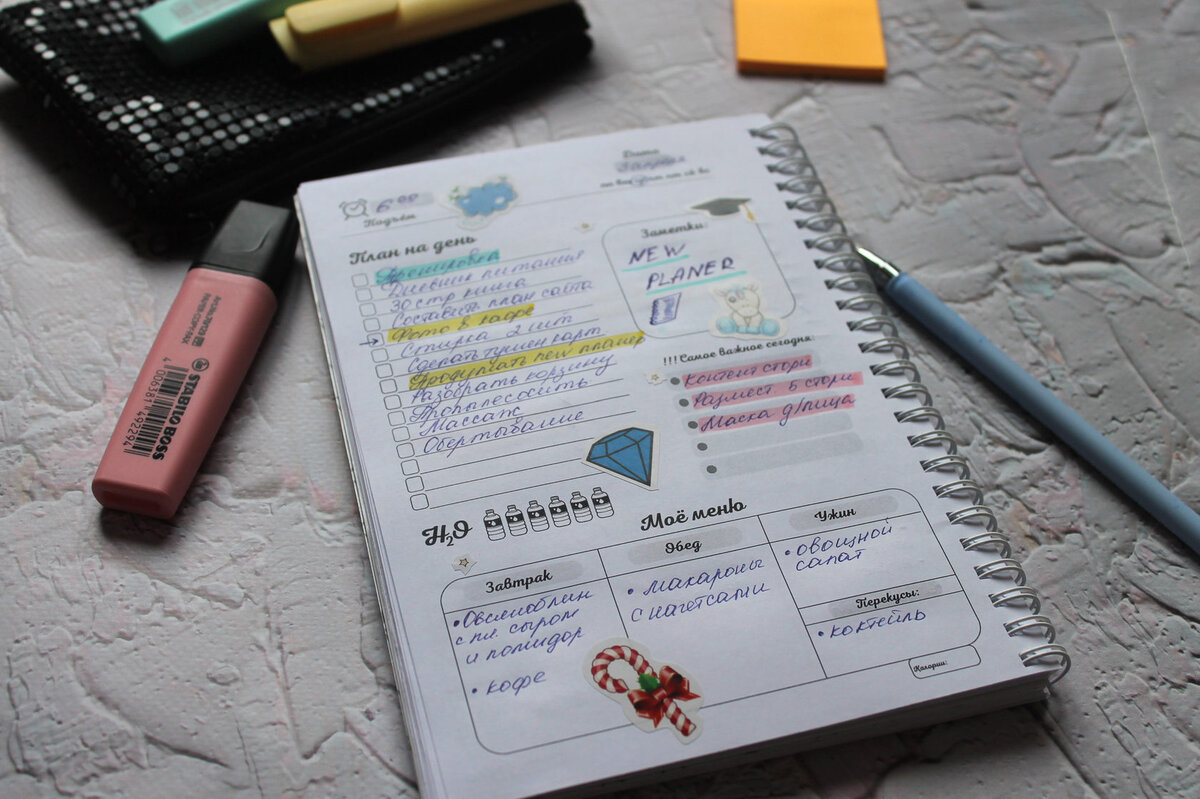 Дата
7 апреля
пн вт ср чт пт сб вс
6:00
Подъём
План на день
Тренировка
Дневник питания
30 стр книга
Составить план сайта
Фото в кафе
Стирка 2 шт
Сделать тушен карт
Продумать new планер
Разобрать корзину
Пропылесосить
Массаж
Обертывание
Заметки:
NEW
PLANER
!!! Самое важное сегодня:
Контент стори
Размест 5 стори
Маска д/лица
H₂O
Моё меню
Завтрак
• Овсяноблин
с пл. сыром
и помидор
• кофе
Обед
• макароны
с нагетсами
Ужин
• овощной
салат
Перекусы:
• коктейль
Калории:
STABILO BOSS
4 006381 492294